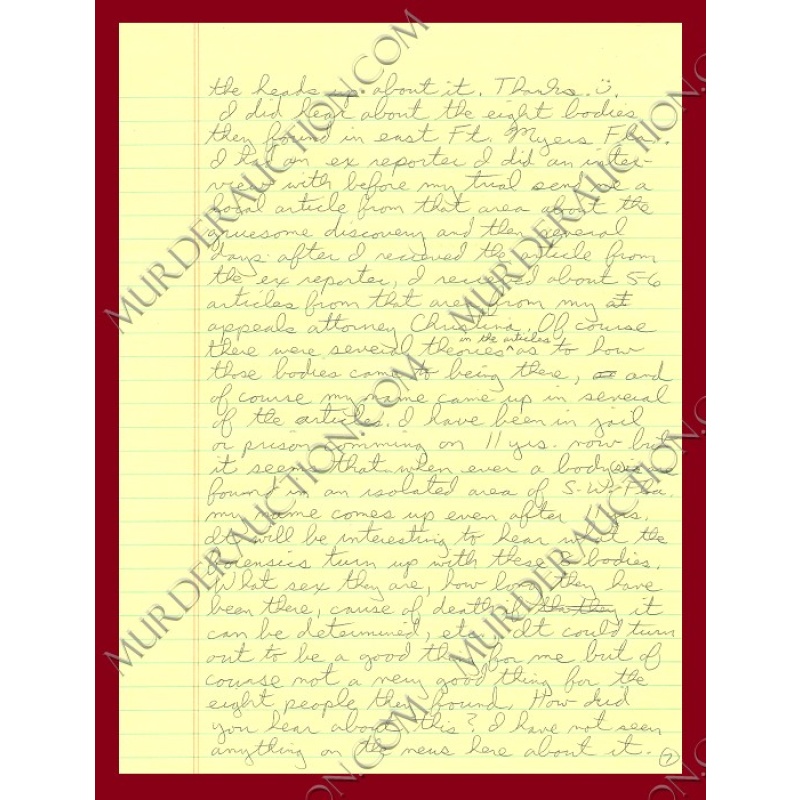 the heads up about it. Thanks. ü.
I did hear about the eight bodies
they found in east Ft. Myers Fla.
I had an ex reporter I did an inter-
view with before my trial send me a
local article from that area about the
gruesome discovery and then several
days after I recieved the article from
the ex reporter, I recieved about 56
articles from that area from my at
appeals attorney Christina. Of course
there were several theories in the articles as to how
those bodies came to being there, and
of course my name came up in several
of the articles. I have been in jail
or prison comming on 11 yrs. now but
it seems that when ever a body
found in an isolated area of S.W. Fla.
my name comes up even after 11 yrs.
It will be interesting to hear what the
forensics turn up with these 8 bodies.
What sex they are, how long they have
been there, cause of death if that they it
can be determined, etc. It could turn
out to be a good thing for me but of
course not a very good thing for the
eight people they found. How did
you hear about this? I have not seen
anything on the news here about it. 2
MURDERAUCTION.COM